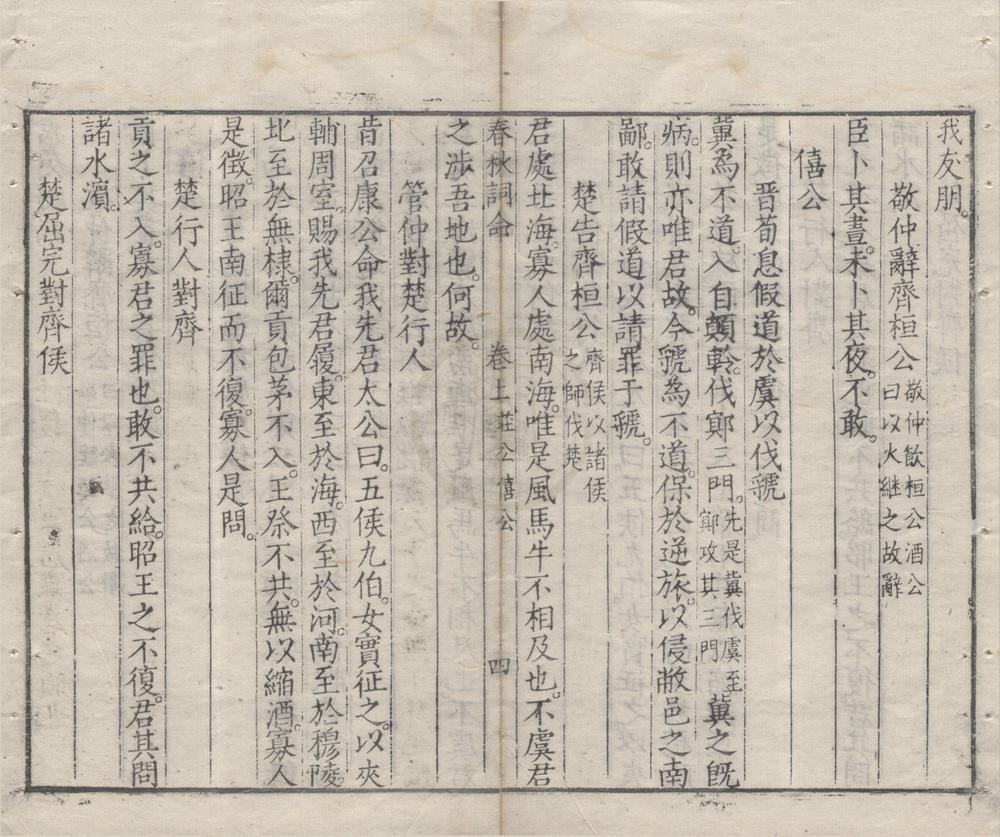 我友朋。
敬仲辭齊桓公敬仲飲桓公酒公曰以火継之故辭
臣卜其晝。未卜其夜。不敢。
僖公
晉荀息假道於虞以伐虢
冀為不道。入自顛軨。伐鄍三門。先是冀伐虞至鄍攻其三門冀之旣
病。則亦唯君故。今虢為不道。保於逆旅。以侵敝邑之南
鄙。敢請假道以請罪于虢。
楚告齊桓公齊侯以諸侯之師伐楚
君處北海。寡人處南海。唯是風馬牛不相及也。不虞君
春秋詞命 卷上莊公僖公 四
之涉吾地也。何故。
管仲對楚行人
昔召康公命我先君太公曰。五侯九伯。女實征之。以夾
輔周室。賜我先君履。東至於海。西至於河。南至於穆陵。
北至於無棣。爾貢包茅不入。王祭不共。無以縮酒。寡人
是徵。昭王南征而不復。寡人是問。
楚行人對齊
貢之不入。寡君之罪也。敢不共給。昭王之不復。君其問
諸水濱。
楚屈完對齊侯